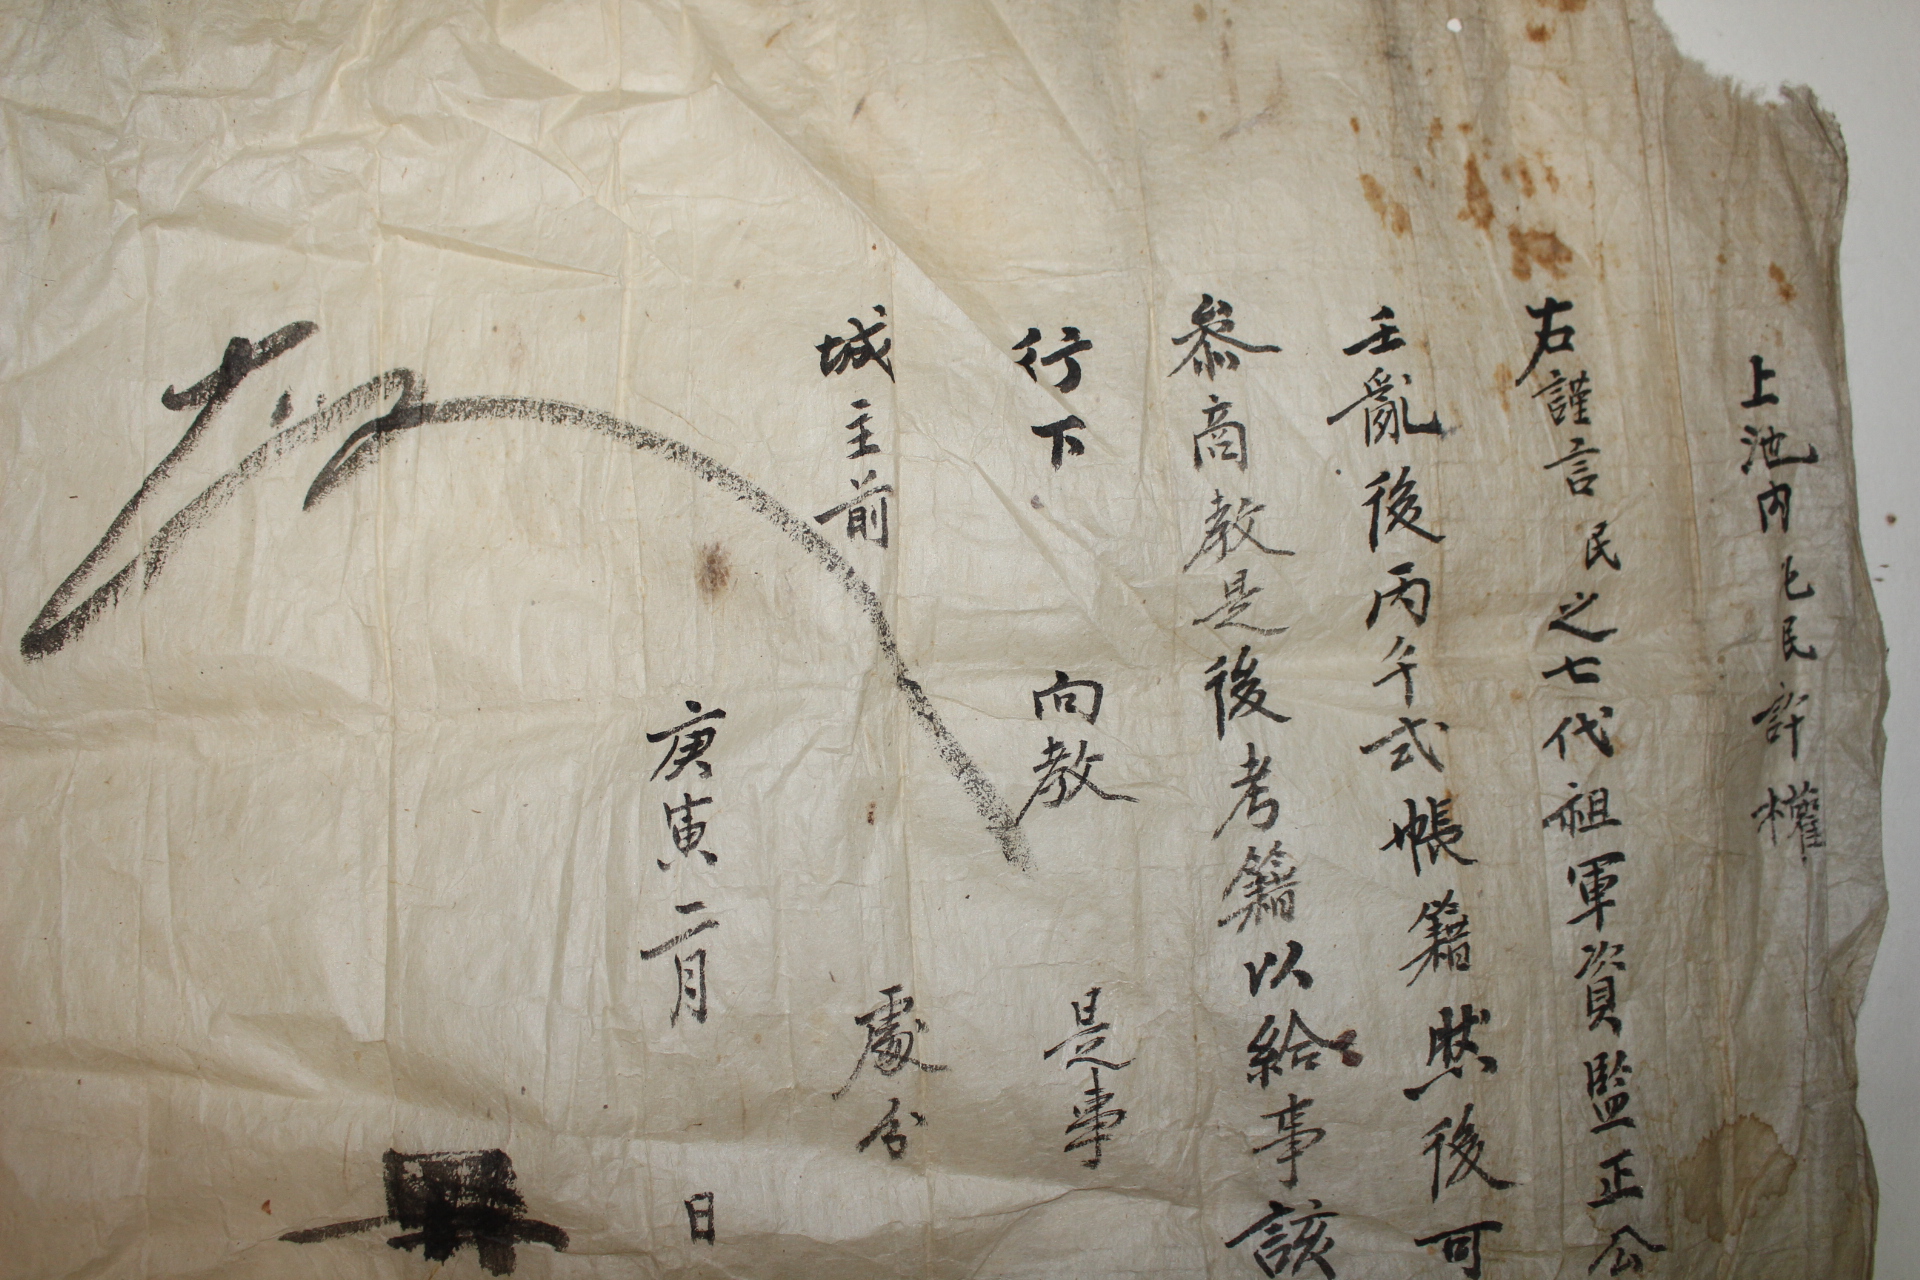 上池內化民許權
右謹言民之七代祖軍資監正公
壬亂後丙午式帳籍然後可
叅商教是後考籍以給事該
行下 向教 是事
城主前 處分
庚寅二月 日